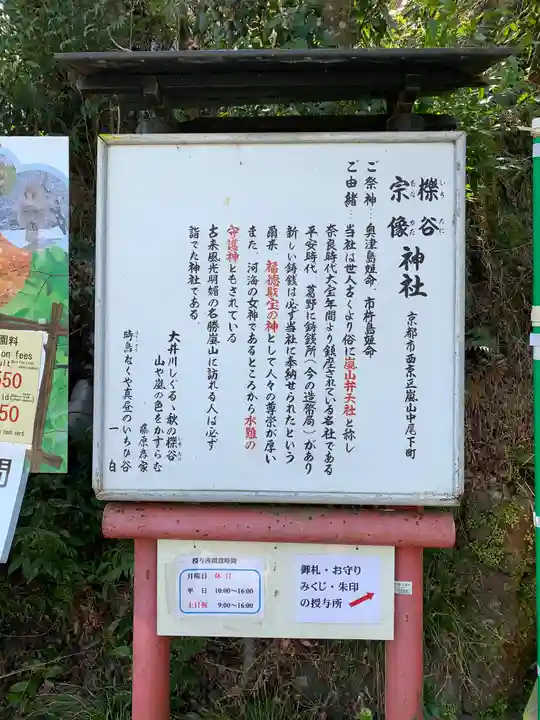 櫟谷
いち たに
宗像 神社
むな かた
京都市西京区嵐山中尾下町
ご祭神…奥津島姫命、市杵島姫命
ご由緒…当社は世人古くより俗に嵐山弁天社と称し
奈良時代大宝年間より鎮座されている名社である
平安時代、葛野に鋳銭所(今の造幣局)があり
新しい鋳銭は必ず当社に奉納せられたという
爾来、福徳財宝の神として人々の尊崇が厚い
また、河海の女神であるところから水難の
守護神ともされている
古来風光明媚の名勝嵐山に訪れる人は必ず
詣でた神社である
大井川しぐるゝ秋の櫟谷
山や嵐の色をかすらむ
藤原為家
時鳥なくや真昼のいちひ谷
一白
授与所開設時間
月曜日 休日
平 日 10:00〜16:00
土日祝 9:00〜16:00
御札・お守り
みくじ・朱印
の授与所
園料
on fees
550